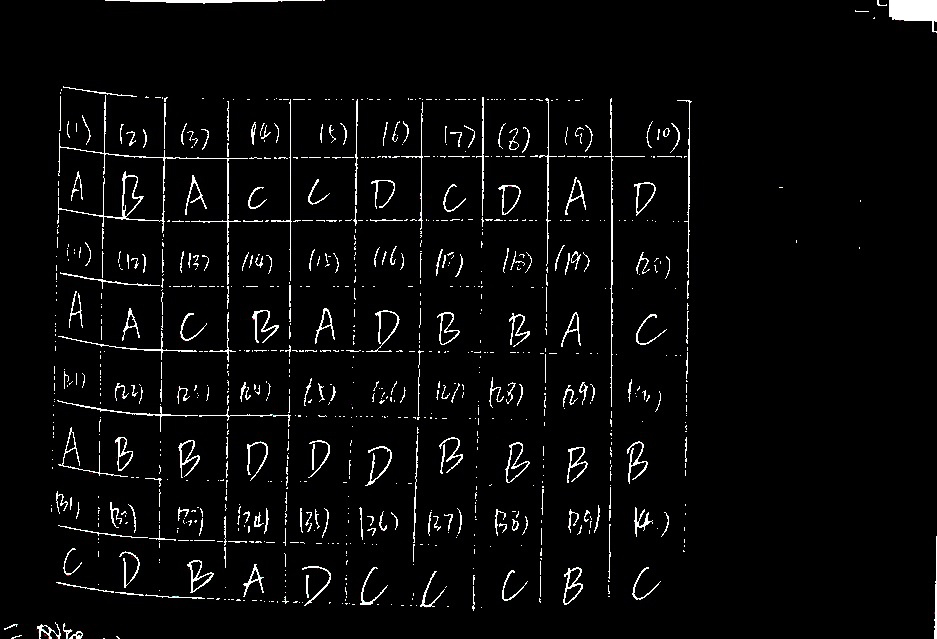 (1) (2) (3) (4) (5) (6) (7) (8) (9) (10)
A B A C C D C D A D
(11) (12) (13) (14) (15) (16) (17) (18) (19) (20)
A A C B A D B B A C
(21) (22) (23) (24) (25) (26) (27) (28) (29) (30)
A B B D D D B B B B
(31) (32) (33) (34) (35) (36) (37) (38) (39) (40)
C D B A D C C C B C